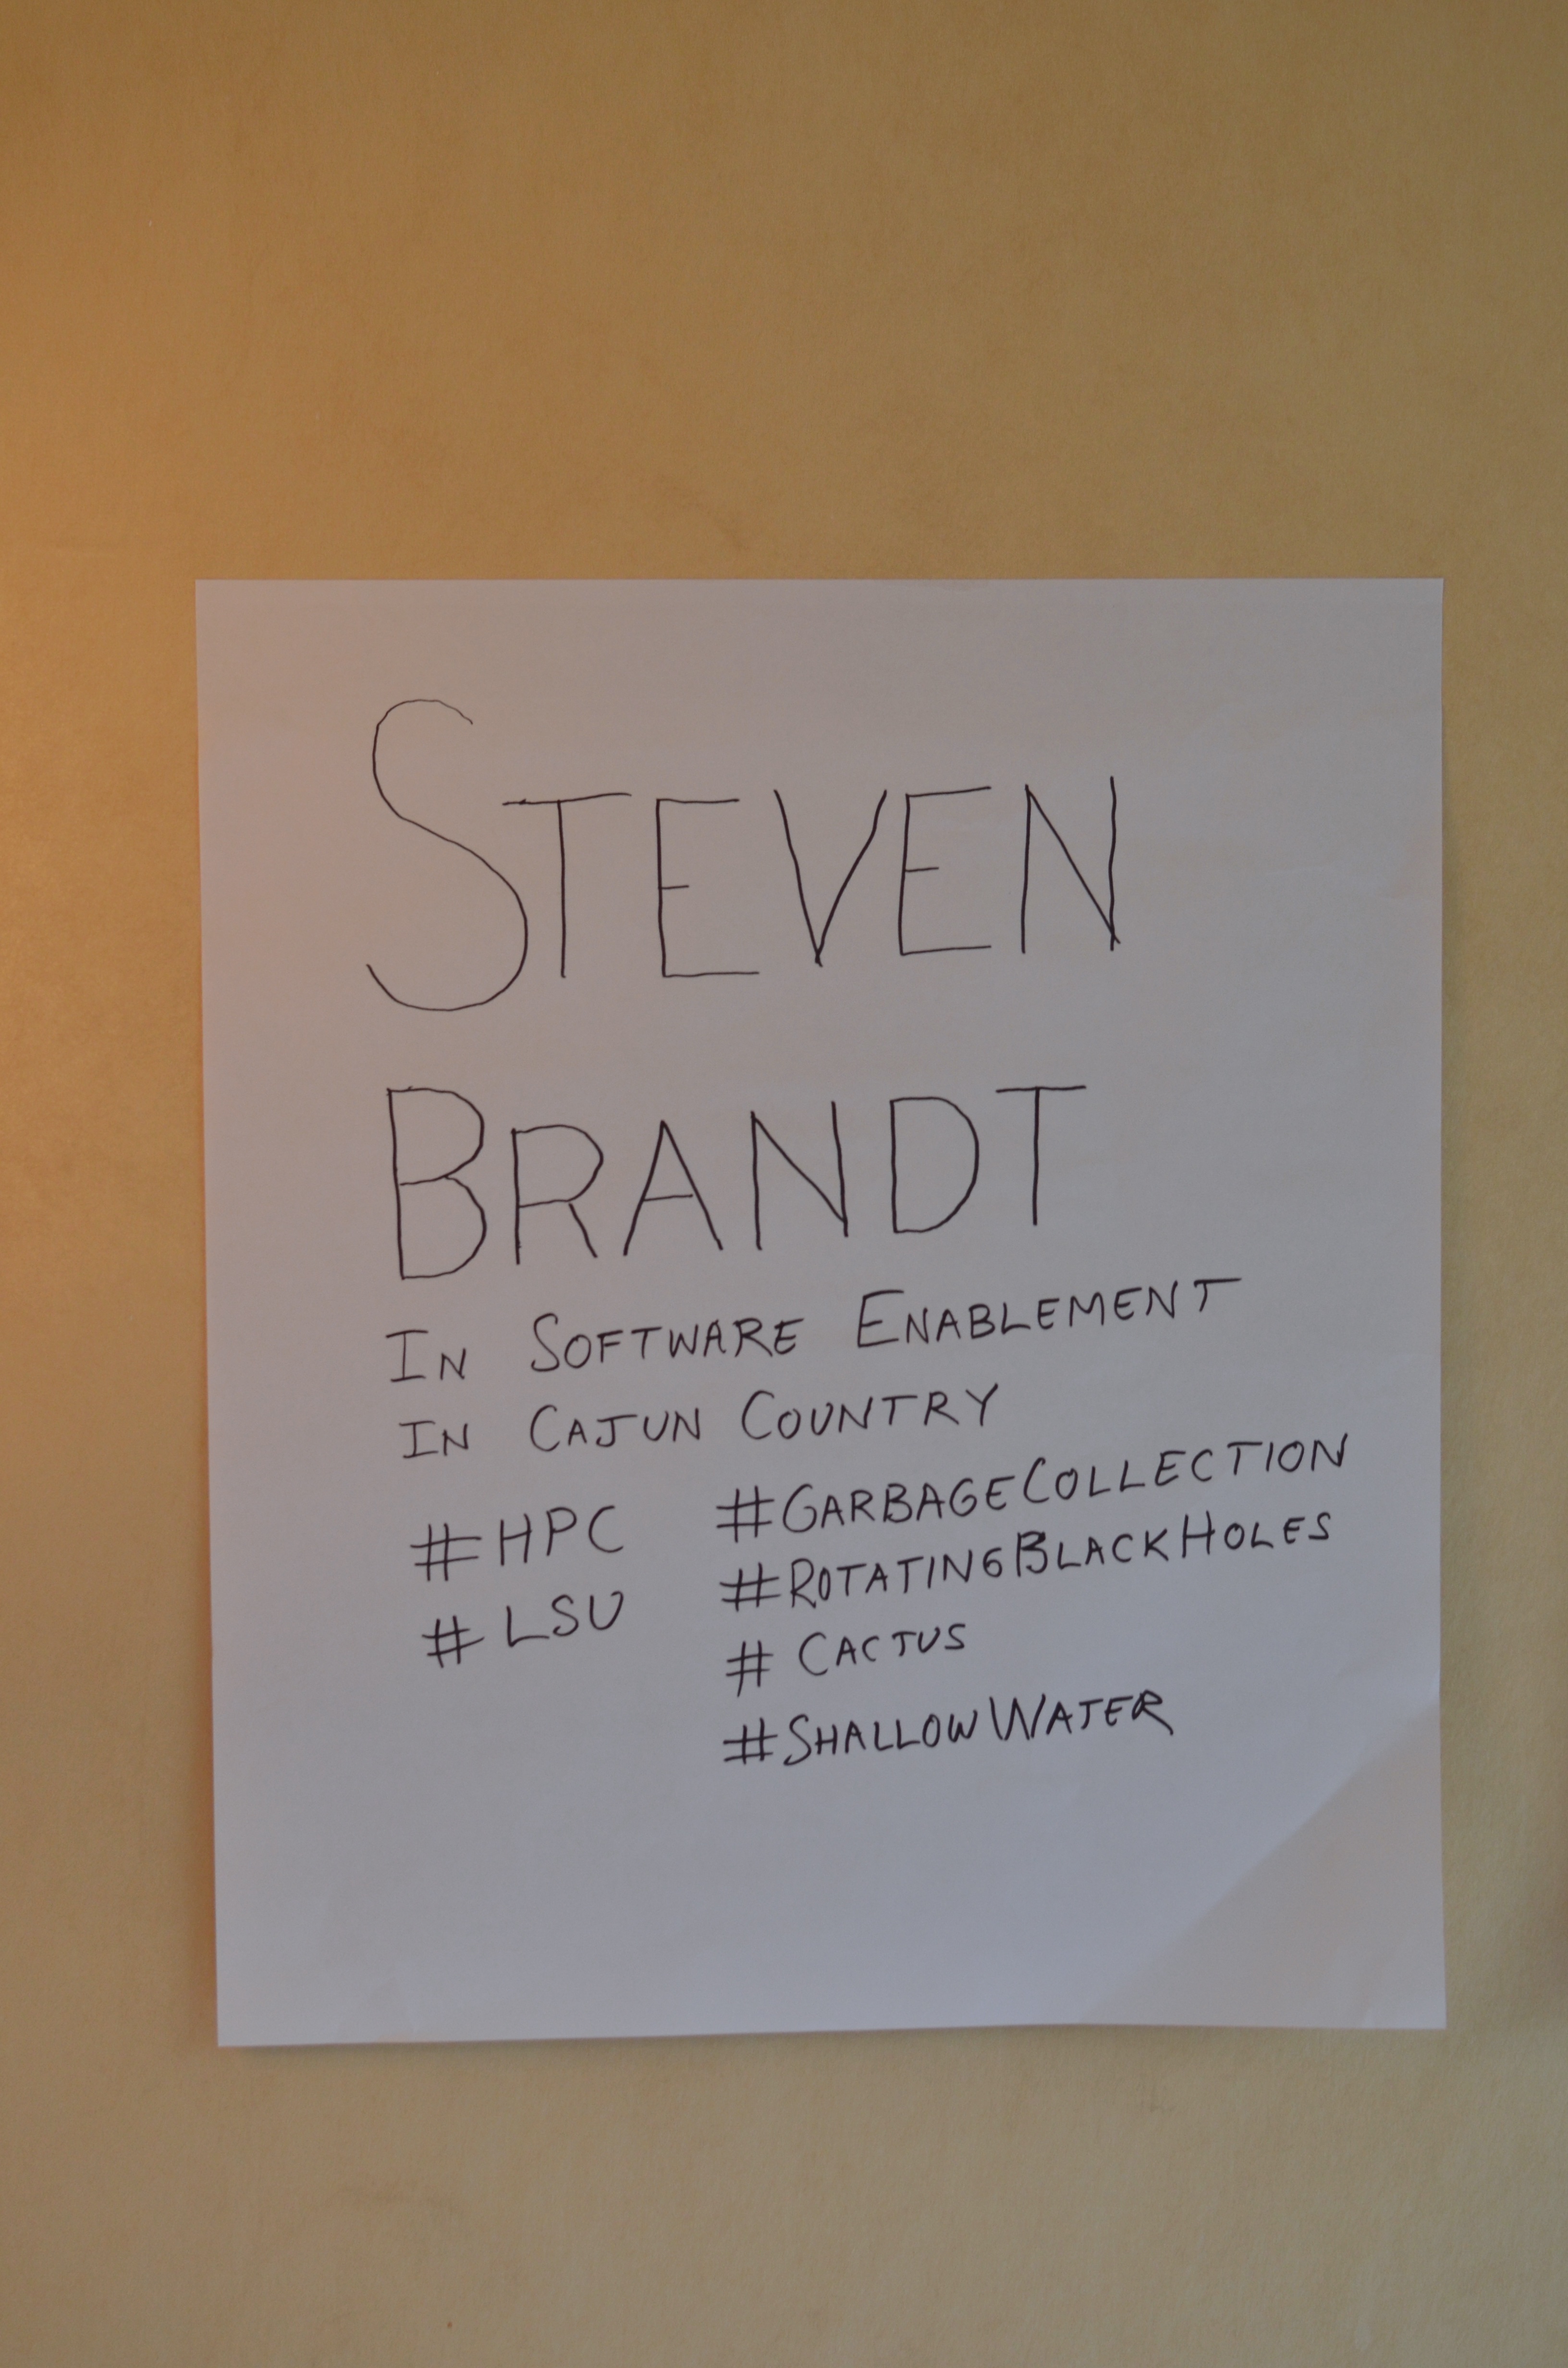 STEVEN
BRANDT
IN SOFTWARE ENABLEMENT
IN CAJUN COUNTRY
#HPC
#LSU
#GARBAGECOLLECTION
#ROTATINGBLACKHOLES
# CACTUS
#SHALLOWWATER